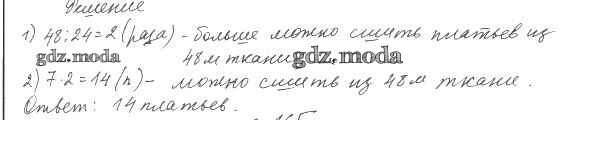 Решение
1) 48:24=2 (раза) - больше можно сшить платьев из
gdz.moda 48м ткани gdz.moda
2) 7·2=14 (п) - можно сшить из 48м ткани.
Ответ: 14 платьев.